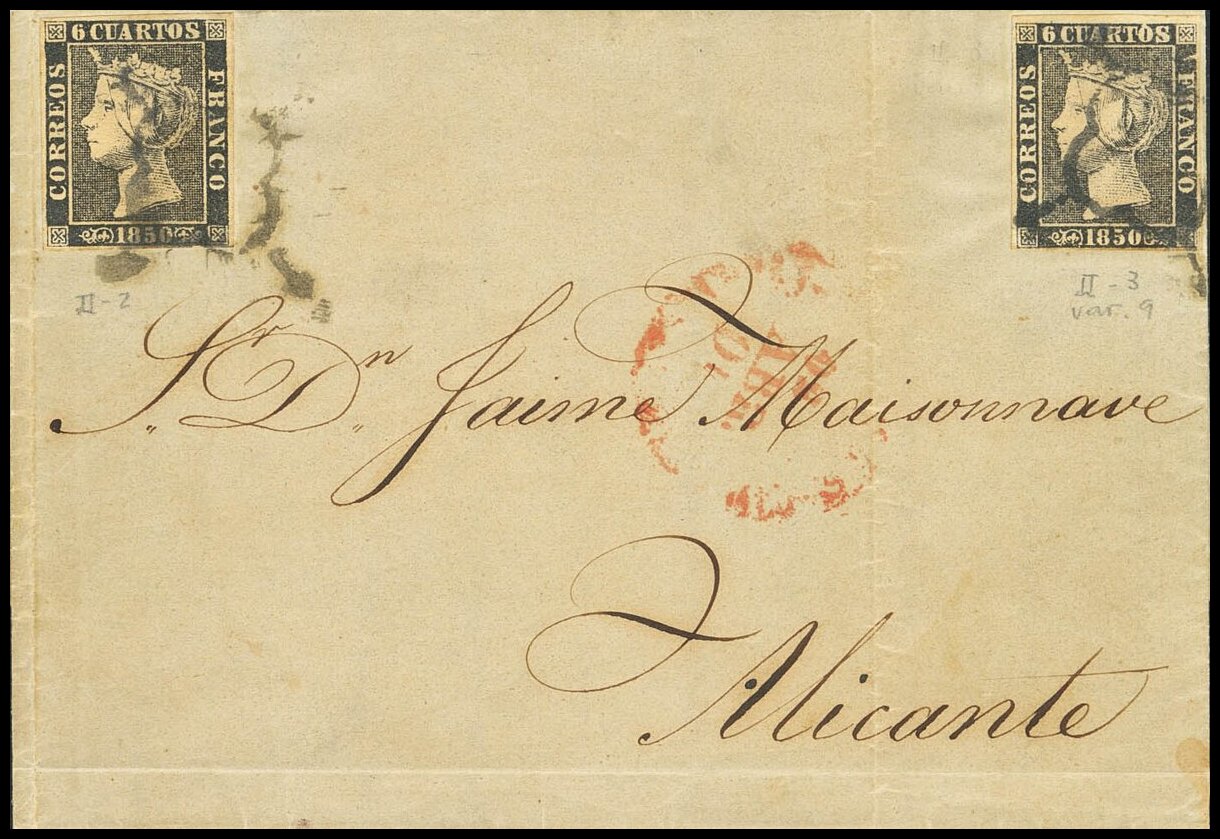 6 CUARTOS
CORREOS
FRANCO
1850
6 CUARTOS
CORREOS
FRANCO
1850
II-2
II-3
var. 9
Sr. Dn. Jaime Maisonnave
Alicante